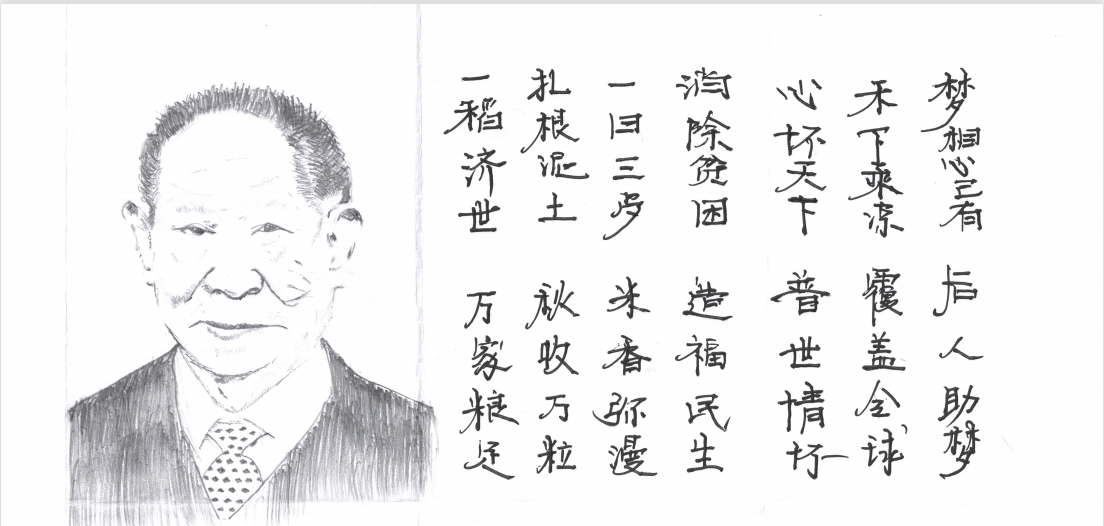 一稻济世 万家粮足
扎根泥土 秋收万粒
一日三歺 米香弥漫
消除贫困 造福民生
心坏天下 普世情坏
禾下乘凉 覆盖全球
梦想已有 后人助梦